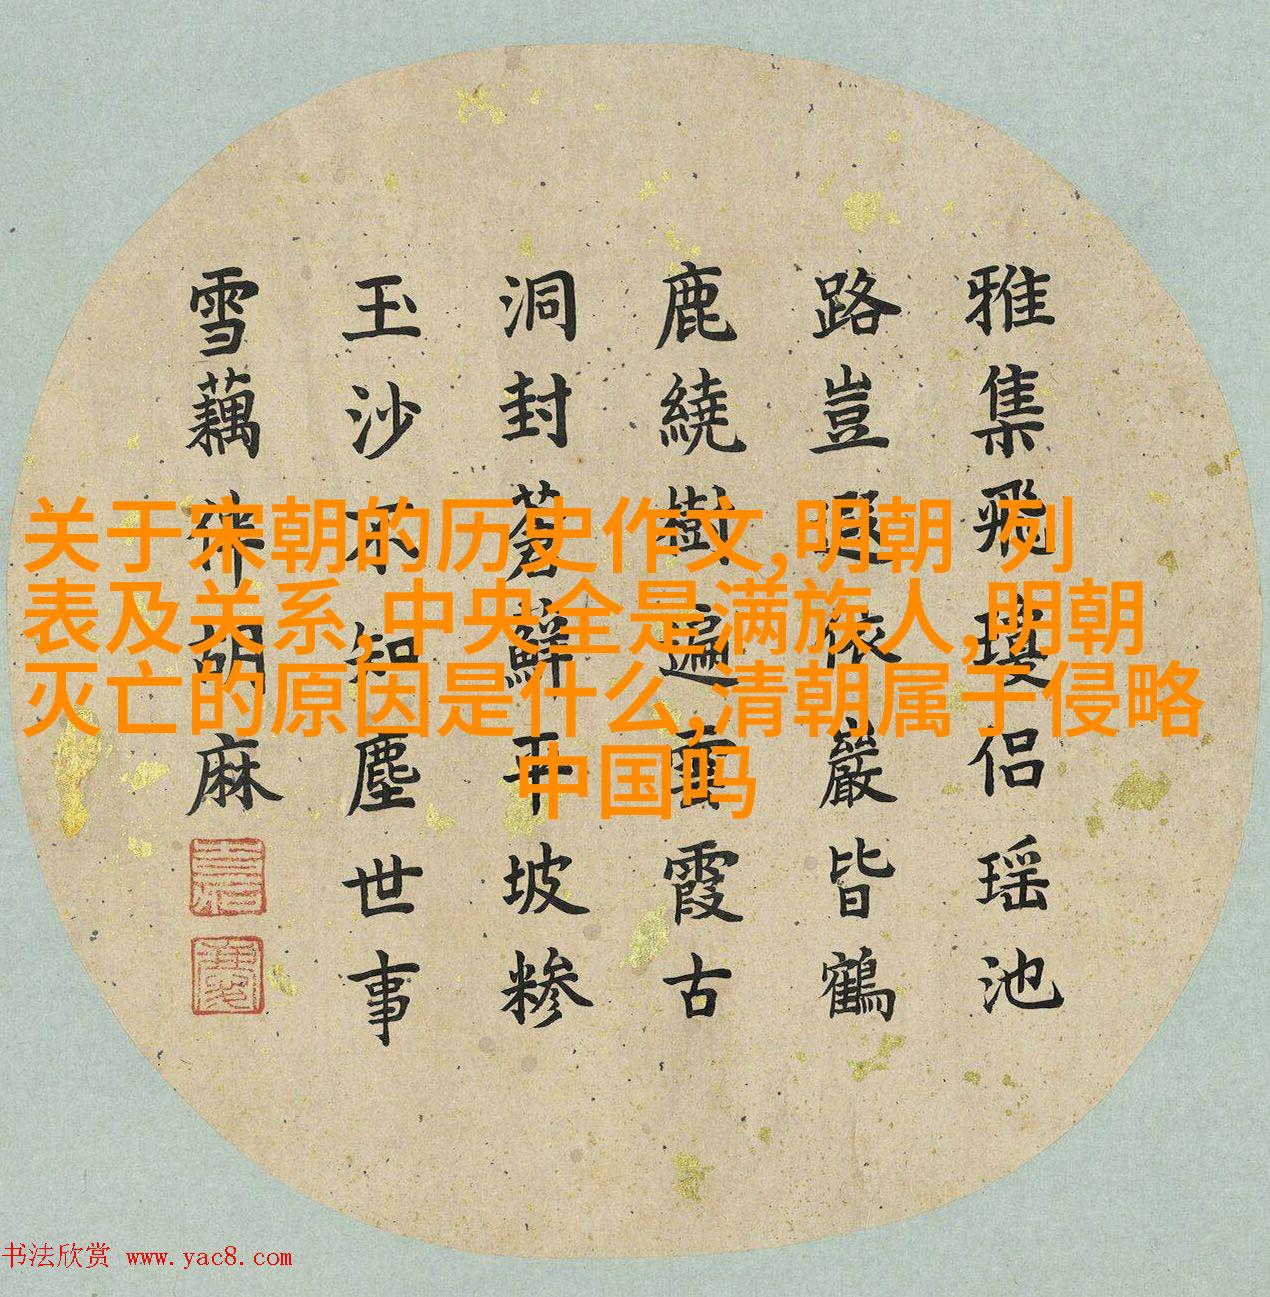 雅集飛瓊侣瑶池
路豈遐依巖皆鶴
鹿繞樹遍霞古
洞封蒼蘚平坡糝
玉沙不知塵世事
雪藕胡麻
关于宋朝的历史作文,明朝 列
表及关系,中央全是满族人,明朝
灭亡的原因是什么,清朝属于侵略
中国吗
书法欣赏 www.yac8.com